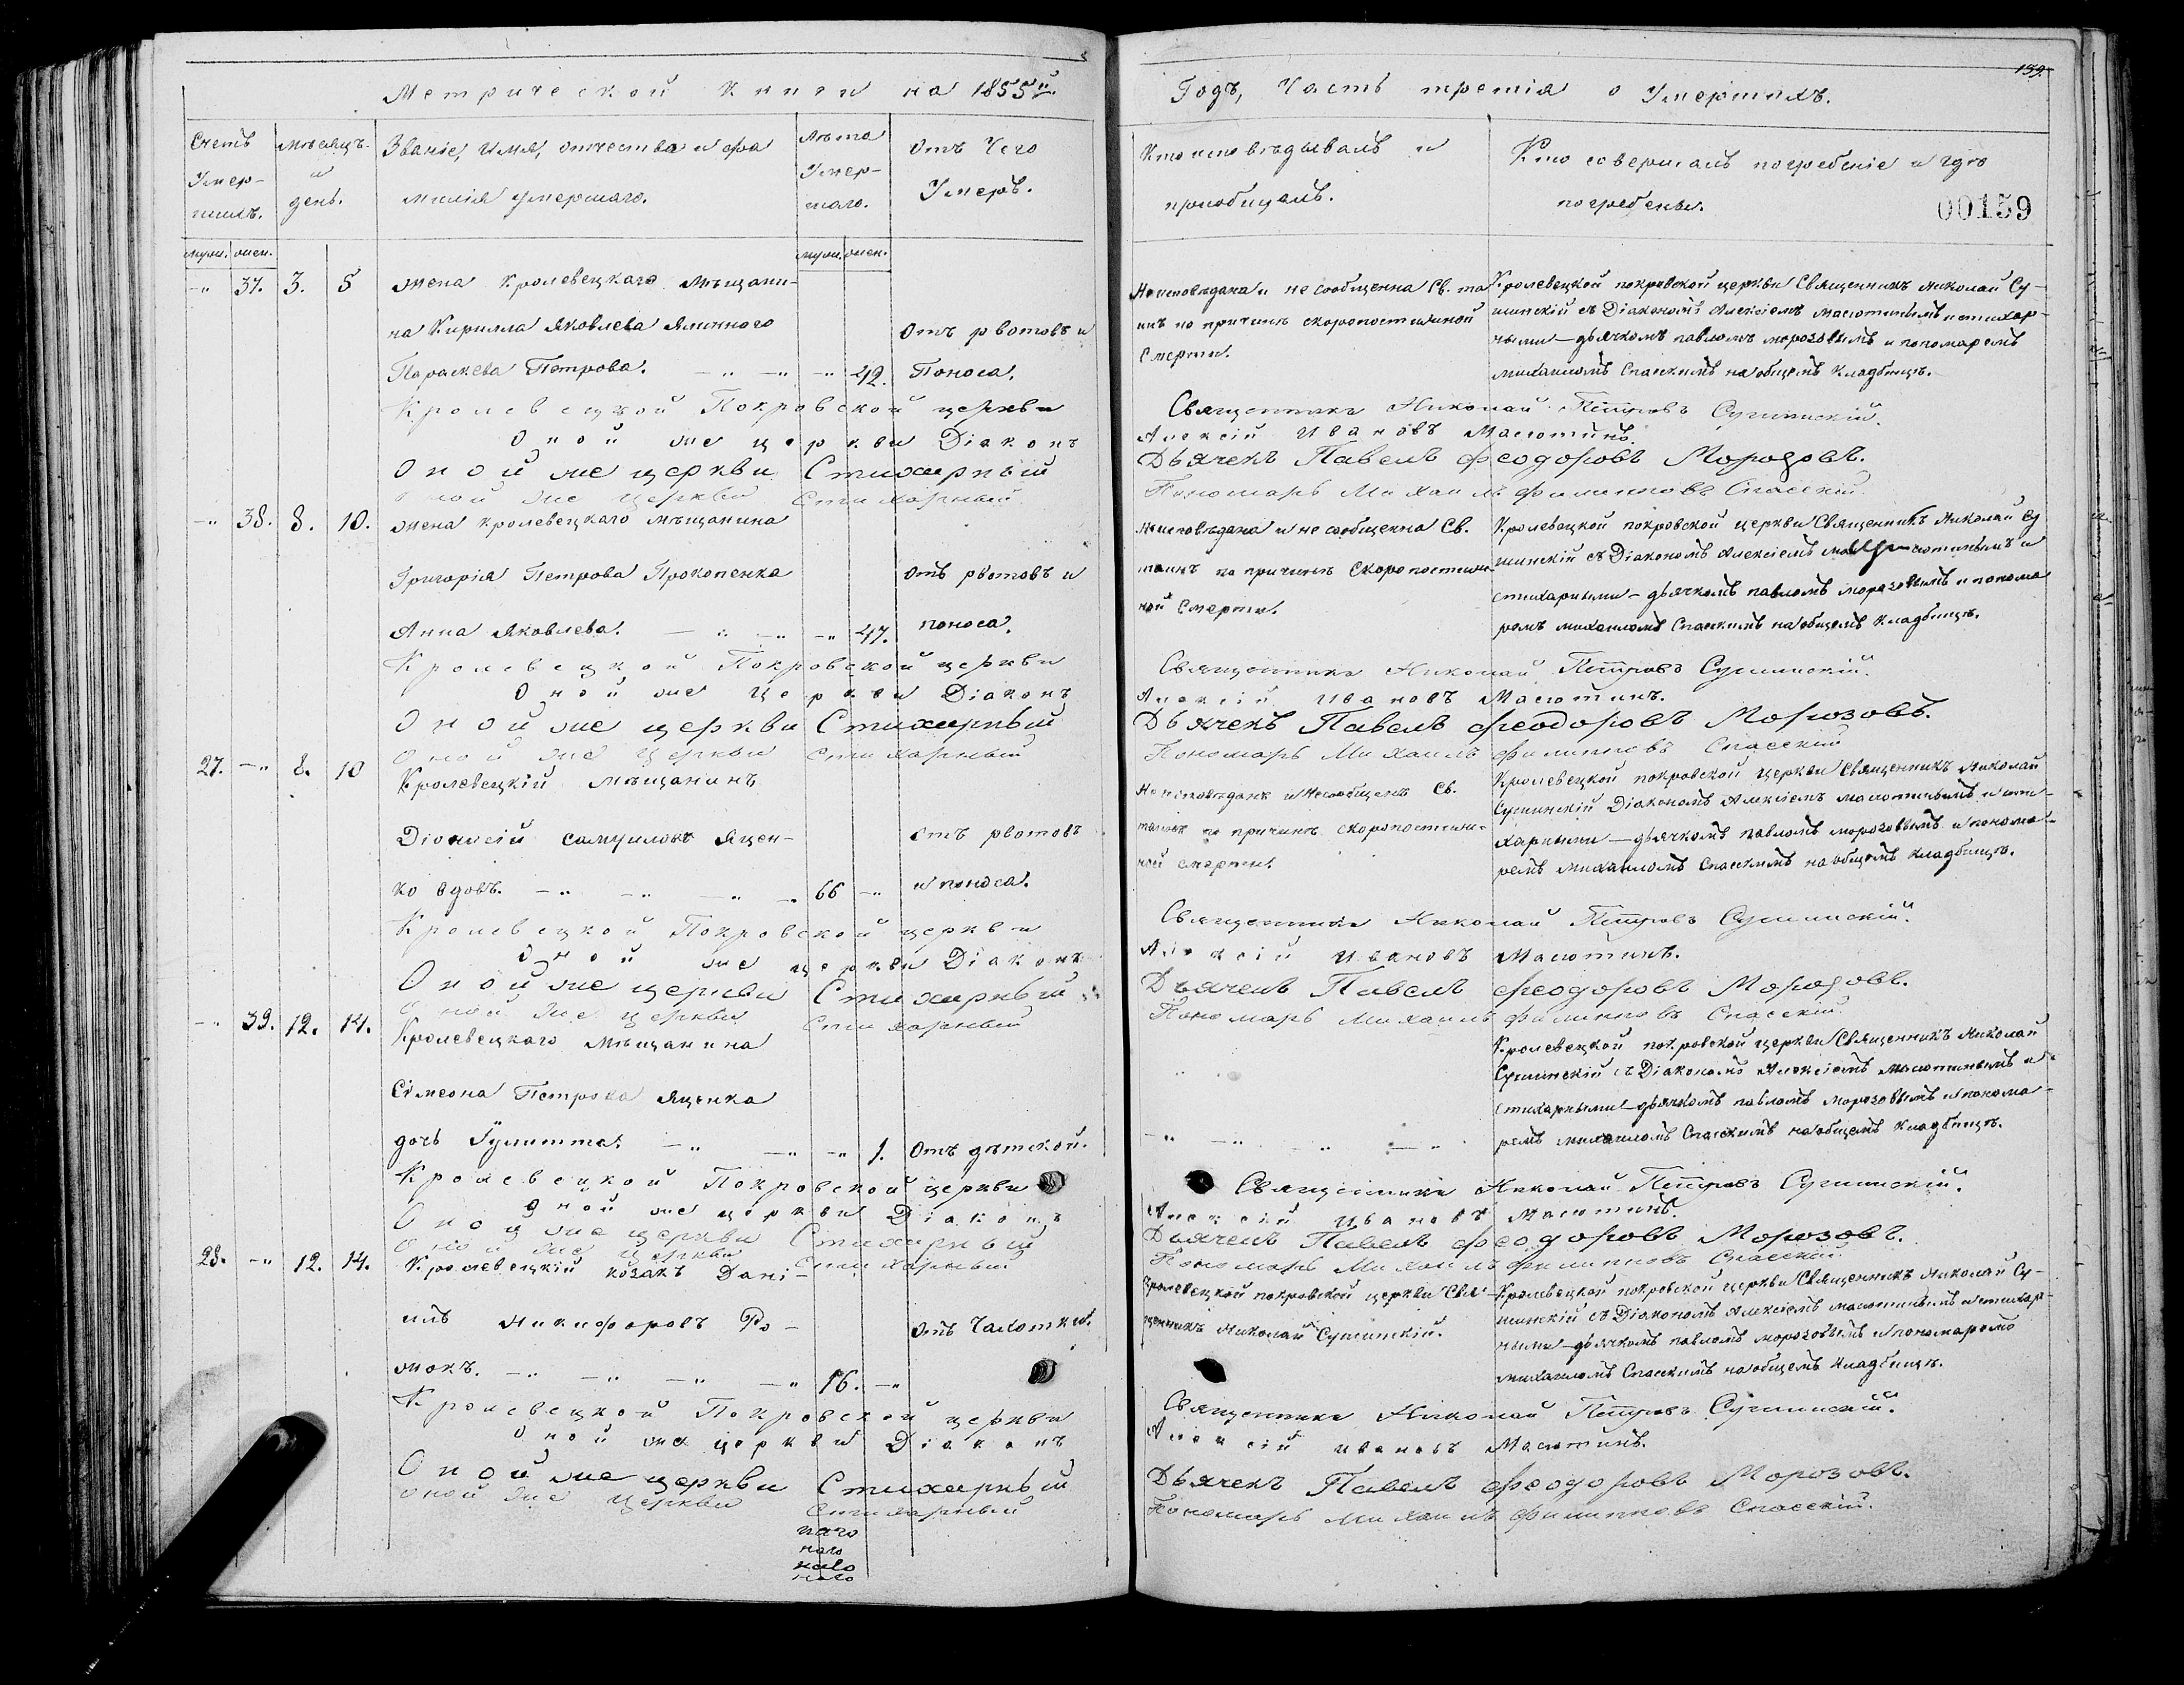 Метрической книги на 1855й.
Счетъ Умер-шихъ.
Мѣсяцъ и день.
Званіе, Имя, отчество и фа
милія умершаго.
Лѣта Умер-шаго.
Отъ Чего Умеръ.
муж. жен.
муж. жен.
-" 37. 3. 5 жена Кролевецкаго Мѣщани-
на Кирилла Яковлева
Отъ рвотовъ и
Параскева Петрова. -" -" -" 42. Поноса.
Кролевецкой Покровской церкви
Оной же церкви Діаконъ
Оной же церкви Стихарный
Оной же церкви Стихарный
-" 38. 8. 10. жена кролевецкаго мѣщанина
Григорія Петрова Прокопенка отъ рвотовъ и
Анна Яковлева. -" -" -" 47. поноса.
Кролевецкой Покровской церкви
Оной же церкви Діаконъ
Оной же церкви Стихарный
Оной же церкви Стихарный
27. -" 8. 10 Кролевецкій мѣщанинъ
Діонисій Самуиловъ Яцен- отъ рвотовъ
ко вдовъ. -" -" -" -" 66 -" и поноса.
Кролевецкой Покровской церкви
Оной же церкви Діаконъ
Оной же церкви Стихарный
Оной же церкви Стихарный
-" 39. 12. 14. Кролевецкаго мѣщанина
Сімеона Петрова Яценка
дочь Іулитта. -" -" -" 1. Отъ дѣтской.
Кролевецкой Покровской церкви
Оной же церкви Діаконъ
Оной же церкви Стихарный
Оной же церкви Стихарный
28. -" 12. 14. Кролевецкій козакъ Дані-
илъ Никифоровъ Ро- отъ Чахотки.
жокъ. -" -" -" -" 16. -"
Кролевецкой Покровской церкви
Оной же церкви Діаконъ
Оной же церкви Стихарный
Оной же церкви Стихарный
159.
Годъ, Часть третія о Умершихъ.
Кто исповѣдывалъ и
пріобщалъ.
Кто совершалъ погребеніе и гдѣ
погребены.
00159
Неисповѣдана и не сообщенна Св. та
инъ по причинѣ скоропостижной
Смерти.
Кролевецкой покровской церкви Священникъ Николай Су-
шинскій съ Діакономъ Алексіемъ Масютинымъ и стихар-
ными - дьячкомъ павломъ морозовымъ и пономаремъ
михаиломъ Спасскимъ на общемъ Кладбищѣ.
Священникъ Николай Петровъ Сушинскій.
Алексій Ивановъ Масютинъ.
Дьячекъ Павелъ Феодоровъ Морозовъ.
Пономарь Михаилъ Филипповъ Спасскій.
Неисповѣдана и не сообщенна Св.
таинъ по причинѣ Скоропостиж-
ной Смерти.
Кролевецкой покровской церкви Священникъ Николай Су
шинскій съ Діакономъ Алексіемъ масютинымъ и
стихарными - дьячкомъ павломъ морозовымъ и понома
ремъ михаиломъ Спасскимъ на общемъ Кладбищѣ.
Священникъ Николай Петровъ Сушинскій.
Алексій Ивановъ Масютинъ.
Дьячекъ Павелъ Феодоровъ Морозовъ.
Пономарь Михаилъ Филипповъ Спасскій
Неисповѣданъ и несообщенъ Св.
таинъ по причинѣ скоропостиж-
ной смерти.
Кролевецкой покровской церкви Священникъ Николай
Сушинскій Діакономъ Алексіемъ масютинымъ и сти-
харными - дьячкомъ павломъ морозовымъ и понома-
ремъ михаиломъ Спасскимъ на общемъ Кладбищѣ.
Священникъ Николай Петровъ Сушинскій.
Алексій Ивановъ Масютинъ.
Дьячекъ Павелъ Феодоровъ Морозовъ.
Пономарь Михаилъ Филипповъ Спасскій.
Кролевецкой покровской церкви Священникъ Николай
Сушинскій съ Діакономъ Алексіемъ Масютинымъ и
стихарными - дьячкомъ павломъ морозовымъ и понома-
ремъ михаиломъ Спасскимъ на общемъ Кладбищѣ.
Священникъ Николай Петровъ Сушинскій.
Алексій Ивановъ Масютинъ.
Дьячекъ Павелъ Феодоровъ Морозовъ.
Пономарь Михаилъ Филипповъ Спасскій.
Кролевецкой покровской церкви Свя-
щенникъ Николай Сушинскій.
Кролевецкой покровской церкви Священникъ Николай Су-
шинскій съ Діакономъ Алексіемъ масютинымъ и стихар-
ными - дьячкомъ павломъ морозовымъ и пономаремъ
михаиломъ Спасскимъ на общемъ Кладбищѣ.
Священникъ Николай Петровъ Сушинскій.
Алексій Ивановъ Масютинъ.
Дьячекъ Павелъ Феодоровъ Морозовъ.
Пономарь Михаилъ Филипповъ Спасскій.